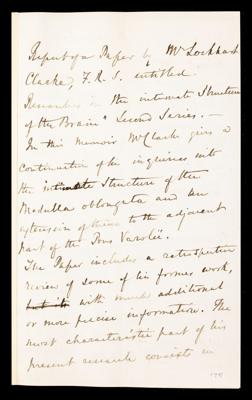 Report of a Paper by Mr Lockhart
Clarke, F.R.S. entitled
Researches on the intimate Structure
of the Brain" Second Series. —
In this Memoir Mr Clarke gives a
continuation of his inquiries into
the intimate Structure of the
Medulla oblongata and
extension of them to the adjacent
part of the Pons Varolii.
The Paper includes a retrospective
review of some of his former work,
with much additional
or more precise information. The
most characteristic part of his
present research consists in